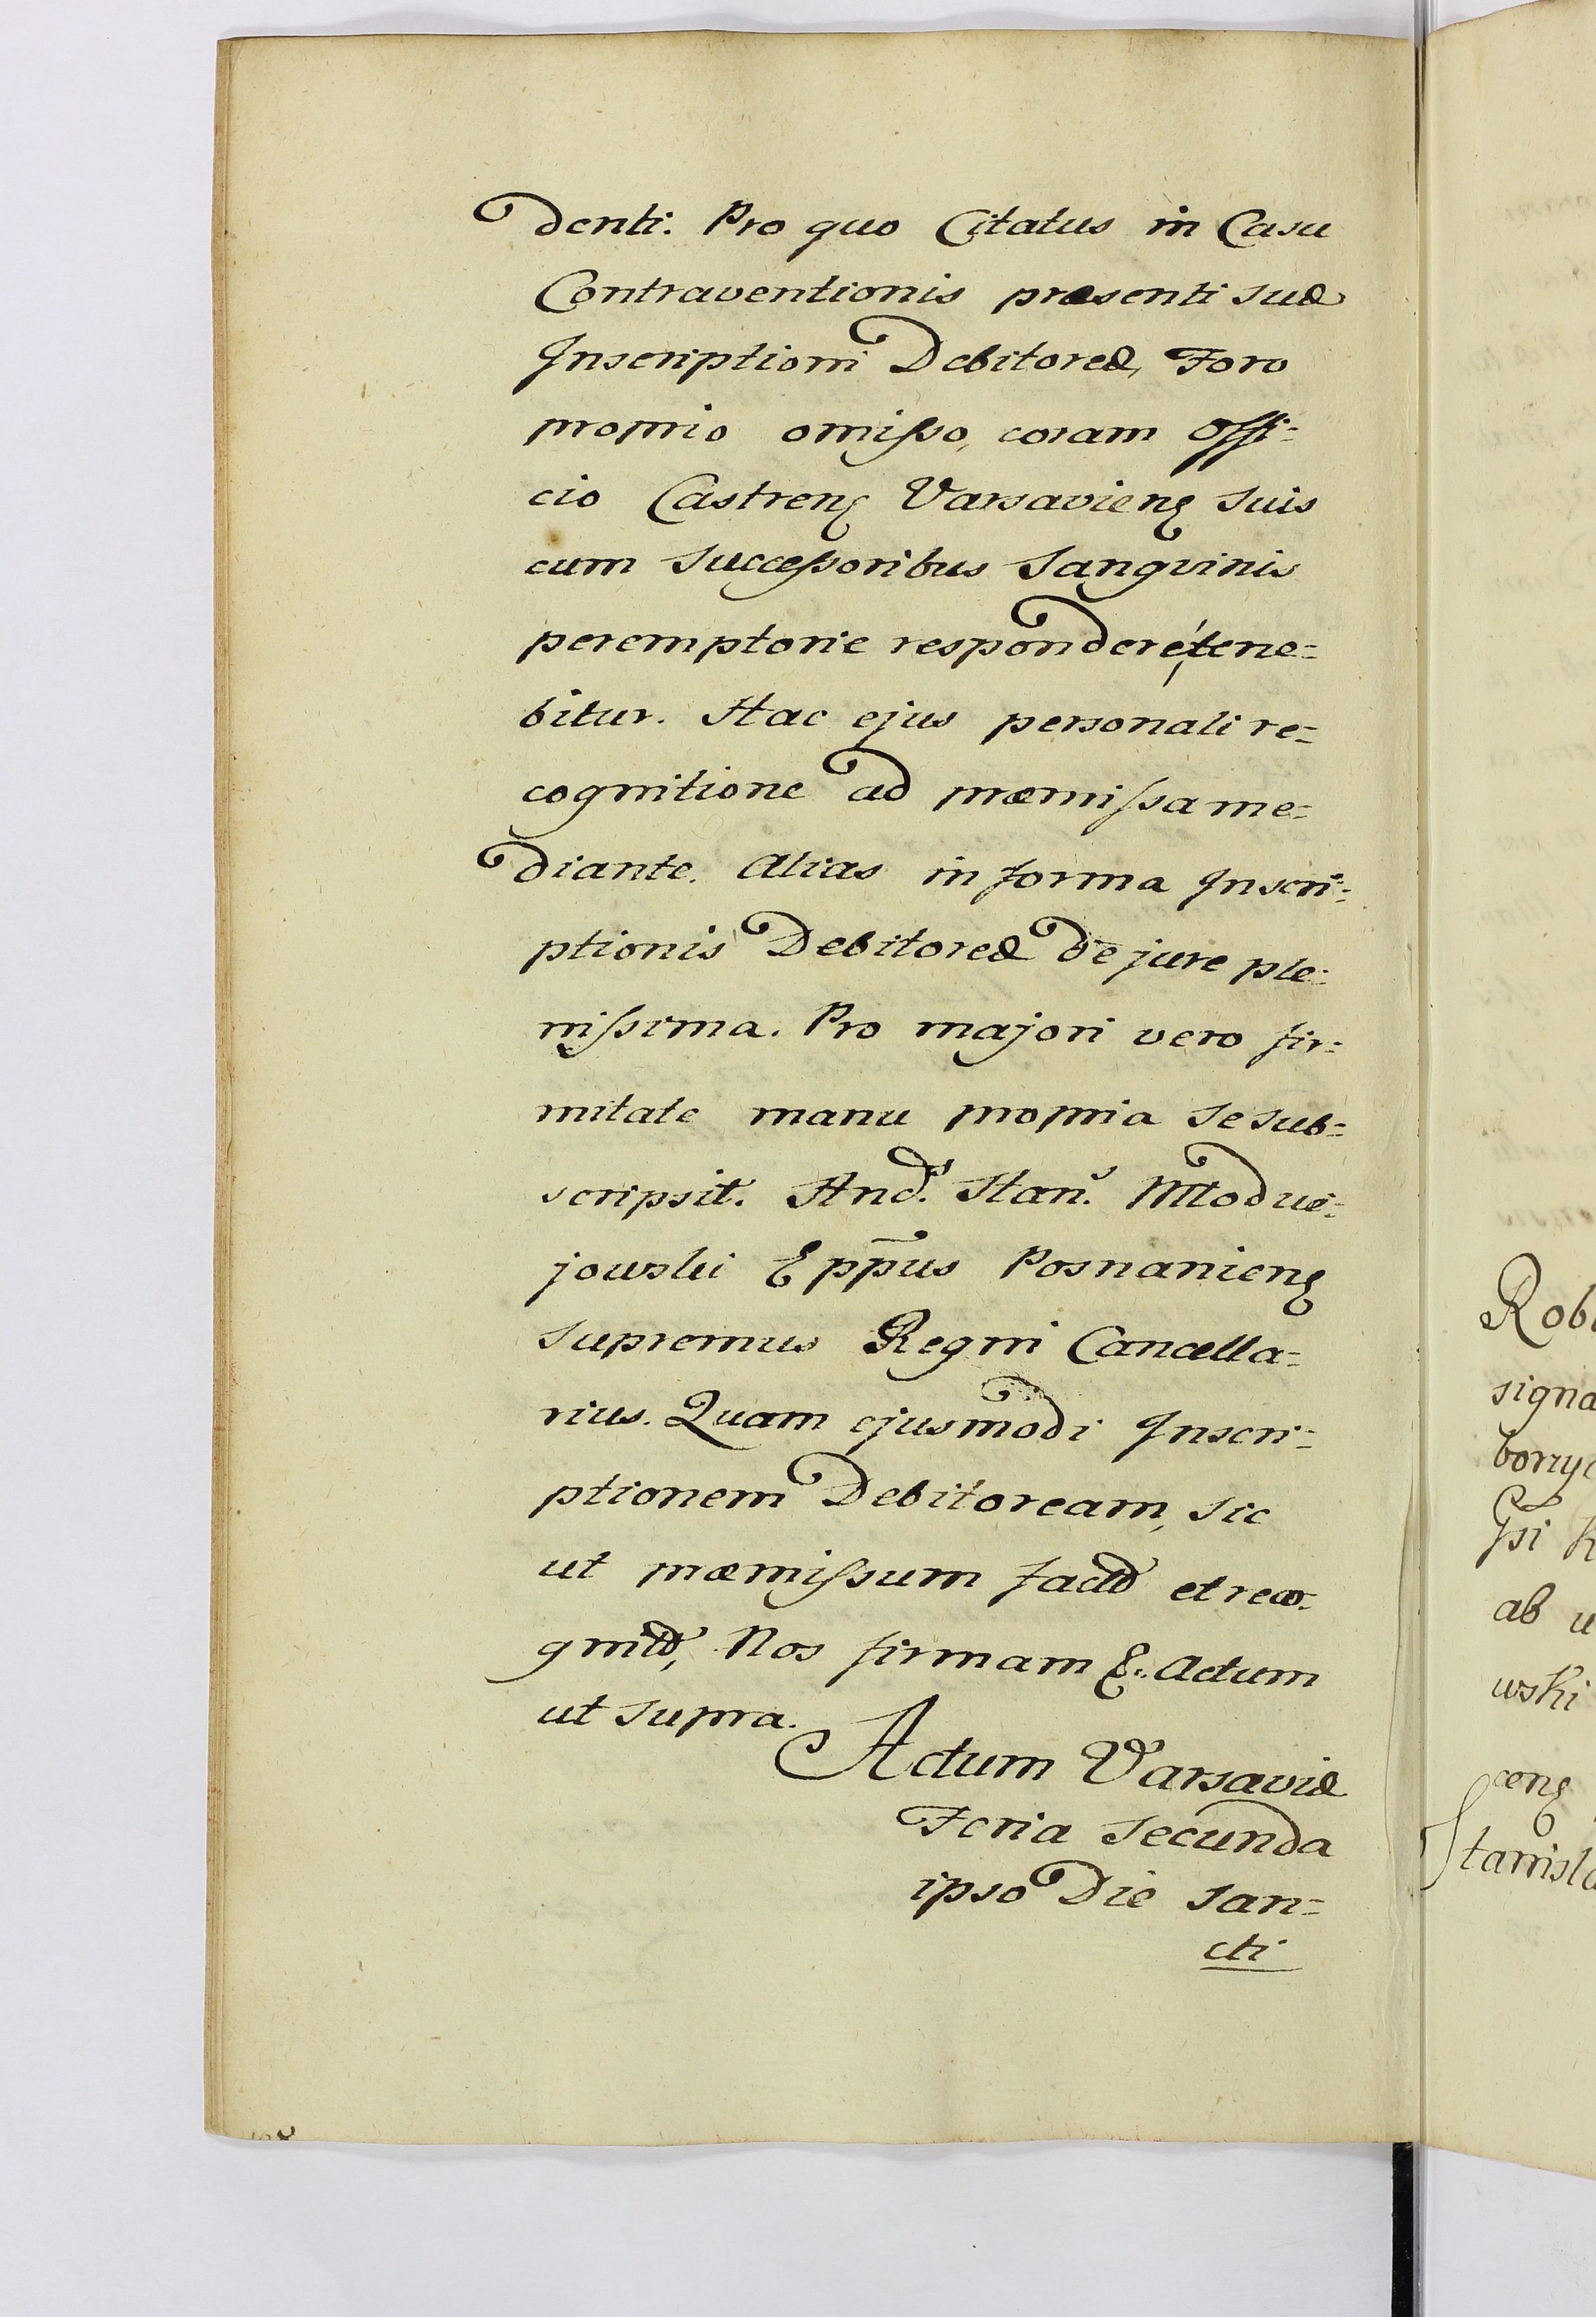 denti. Pro quo Citatus in Casu
Contraventionis præsenti suæ
Inscriptioni Debitoreæ, Foro
proprio omisso, coram Offi=
cio Castrens Varsaviens suis
cum successoribus Sangvinis
peremptorie respondere tene=
bitur. Hac ejus personali re=
cognitione ad præmissa me=
diante. Alias in forma Inscri=
ptionis Debitoreæ de jure ple=
nissima. Pro majori vero fir=
mitate manu propria se sub=
scripsit. Andr. Stan. Młodzie=
jowski Eppus Posnaniens
Supremus Regni Cancella=
rius. Quam ejusmodi Inscri=
ptionem Debitoream, sic
ut præmissum factã et reco=
gnitã, Nos firmam &. Actum
ut supra.
Actum Varsaviæ
Feria Secunda
ipso Die San=
cti
Rob
signa
ab u
wski
cens
Stanisla